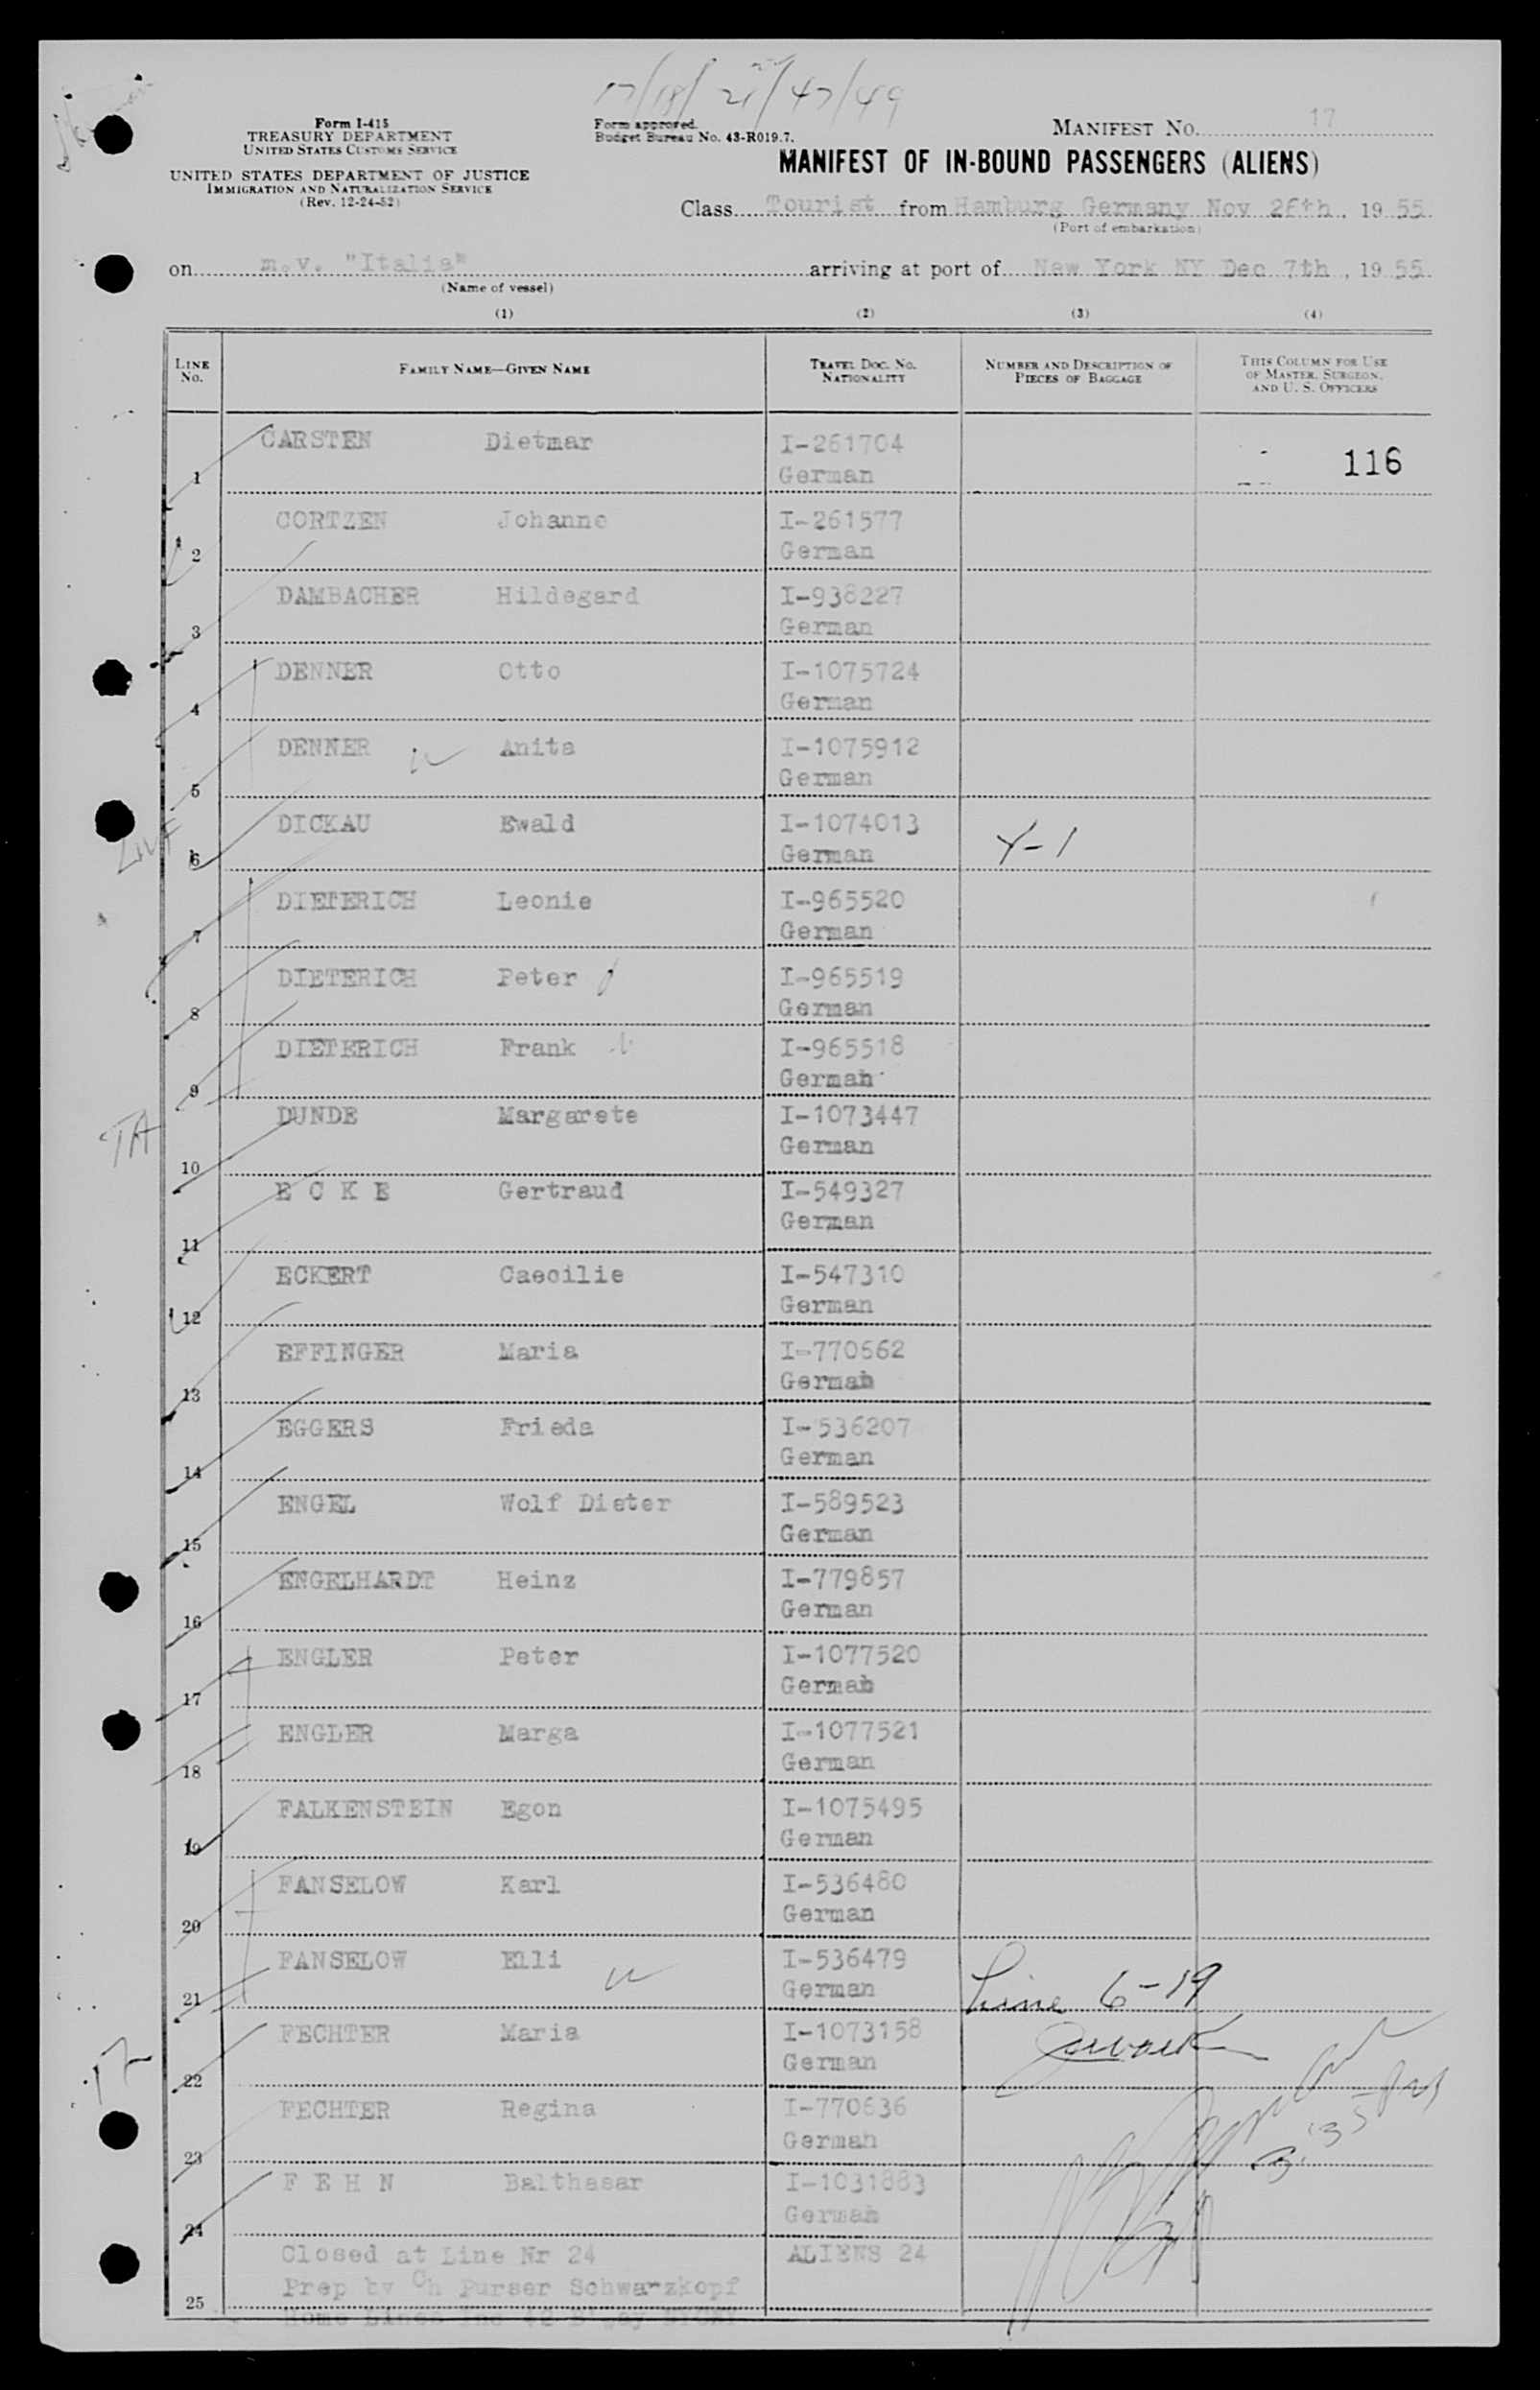 17/18/21/47/49
Form I-415
TREASURY DEPARTMENT
UNITED STATES CUSTOMS SERVICE
UNITED STATES DEPARTMENT OF JUSTICE
IMMIGRATION AND NATURALIZATION SERVICE
(Rev. 12-24-52)
Form approved.
Budget Bureau No. 43-R019.7.
MANIFEST NO. 17
MANIFEST OF IN-BOUND PASSENGERS (ALIENS)
Class Tourist from Hamburg Germany Nov 26th, 19 55
(Port of embarkation)
on m.v. "Italia" arriving at port of New York NY Dec 7th, 19 55
(Name of vessel)
(1) (2) (3) (4)
LINE NO. FAMILY NAME—GIVEN NAME TRAVEL DOC. NO. NATIONALITY NUMBER AND DESCRIPTION OF PIECES OF BAGGAGE THIS COLUMN FOR USE OF MASTER, SURGEON, AND U. S. OFFICERS
1 CARSTEN Dietmar I-261704 116
German
2 CORTZEN Johanne I-261577
German
3 DAMBACHER Hildegard I-938227
German
4 DENNER Otto I-1075724
German
5 DENNER Anita I-1075912
German
6 DICKAU Ewald I-1074013
German Y-1
7 DIETERICH Leonie I-965520
German
8 DIETERICH Peter I-965519
German
9 DIETERICH Frank I-965518
German
TA
10 DUNDE Margarete I-1073447
German
11 E C K E Gertraud I-549327
German
12 ECKERT Caecilie I-547310
German
13 EFFINGER Maria I-770662
German
14 EGGERS Frieda I-536207
German
15 ENGEL Wolf Dieter I-589523
German
16 ENGELHARDT Heinz I-779857
German
17 ENGLER Peter I-1077520
German
18 ENGLER Marga I-1077521
German
19 FALKENSTEIN Egon I-1075495
German
20 FANSELOW Karl I-536480
German
21 FANSELOW Elli I-536479
German Line 6-19
22 FECHTER Maria I-1073158
German
17
23 FECHTER Regina I-770636
German
24 F E H N Balthasar I-1031883
German
25 Closed at Line Nr 24 ALIENS 24
Prep by Ch Purser Schwarzkopf
Home Lines Inc 42 B'way